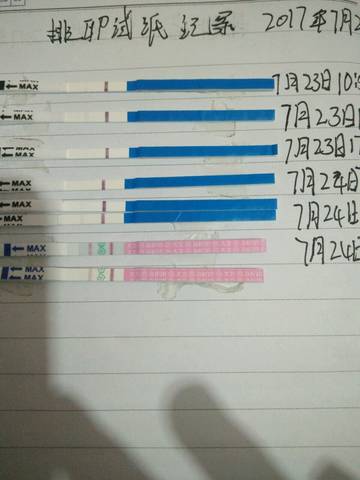 排卵试纸记录 2017年7月2
MAX 7月23日10:
MAX 7月23日1
MAX 7月23日1
MAX 7月24日
MAX 7月24
MAX
MAX 7月24日
MAX